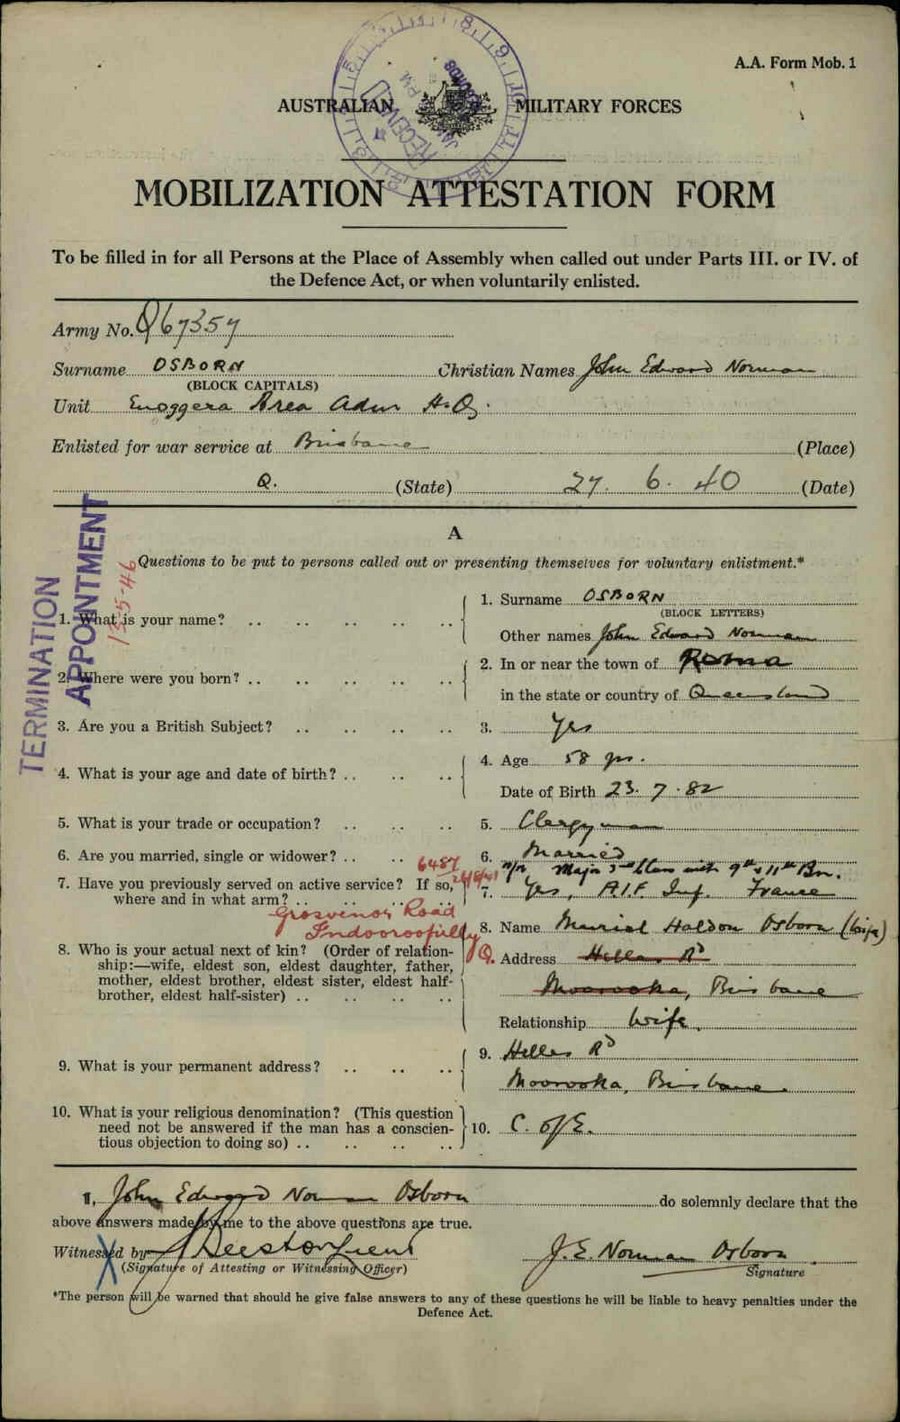 A.A. Form Mob. 1
AUSTRALIAN MILITARY FORCES
RECEIVED
PM
MOBILIZATION ATTESTATION FORM
To be filled in for all Persons at the Place of Assembly when called out under Parts III. or IV. of
the Defence Act, or when voluntarily enlisted.
Army No. Q67357
Surname OSBORN Christian Names John Edward Norman
(BLOCK CAPITALS)
Unit Enoggera Area Adm H.Q.
Enlisted for war service at Brisbane (Place)
Q. (State) 27. 6. 40 (Date)
A
Questions to be put to persons called out or presenting themselves for voluntary enlistment.*
TERMINATION
APPOINTMENT
1. What is your name? .. .. .. .. ..
1. Surname OSBORN
(BLOCK LETTERS)
Other names John Edward Norman
2. Where were you born? .. .. .. .. ..
2. In or near the town of Roma
in the state or country of Queensland
3. Are you a British Subject? .. .. .. ..
3. Yes
4. What is your age and date of birth? .. .. ..
4. Age 58 yrs.
Date of Birth 23. 7. 82
5. What is your trade or occupation? .. .. ..
5. Clergyman
6. Are you married, single or widower? .. ..
6. Married
6487
7. Have you previously served on active service? If so,
where and in what arm? .. .. .. .. ..
7. Yes, A.I.F. Inf. France
Grosvenor Road
Indooroopilly
Q.
8. Who is your actual next of kin? (Order of relation-
ship:—wife, eldest son, eldest daughter, father,
mother, eldest brother, eldest sister, eldest half-
brother, eldest half-sister) .. .. .. ..
8. Name Muriel Haldon Osborn (wife)
Address Helles Rd
Moorooka, Brisbane
Relationship Wife.
9. What is your permanent address? .. .. ..
9. Helles Rd
Moorooka, Brisbane.
10. What is your religious denomination? (This question
need not be answered if the man has a conscien-
tious objection to doing so) .. .. .. ..
10. C. of E.
I, John Edward Norman Osborn do solemnly declare that the
above answers made by me to the above questions are true.
Witnessed by
(Signature of Attesting or Witnessing Officer)
J. E. Norman Osborn
Signature
*The person will be warned that should he give false answers to any of these questions he will be liable to heavy penalties under the
Defence Act.